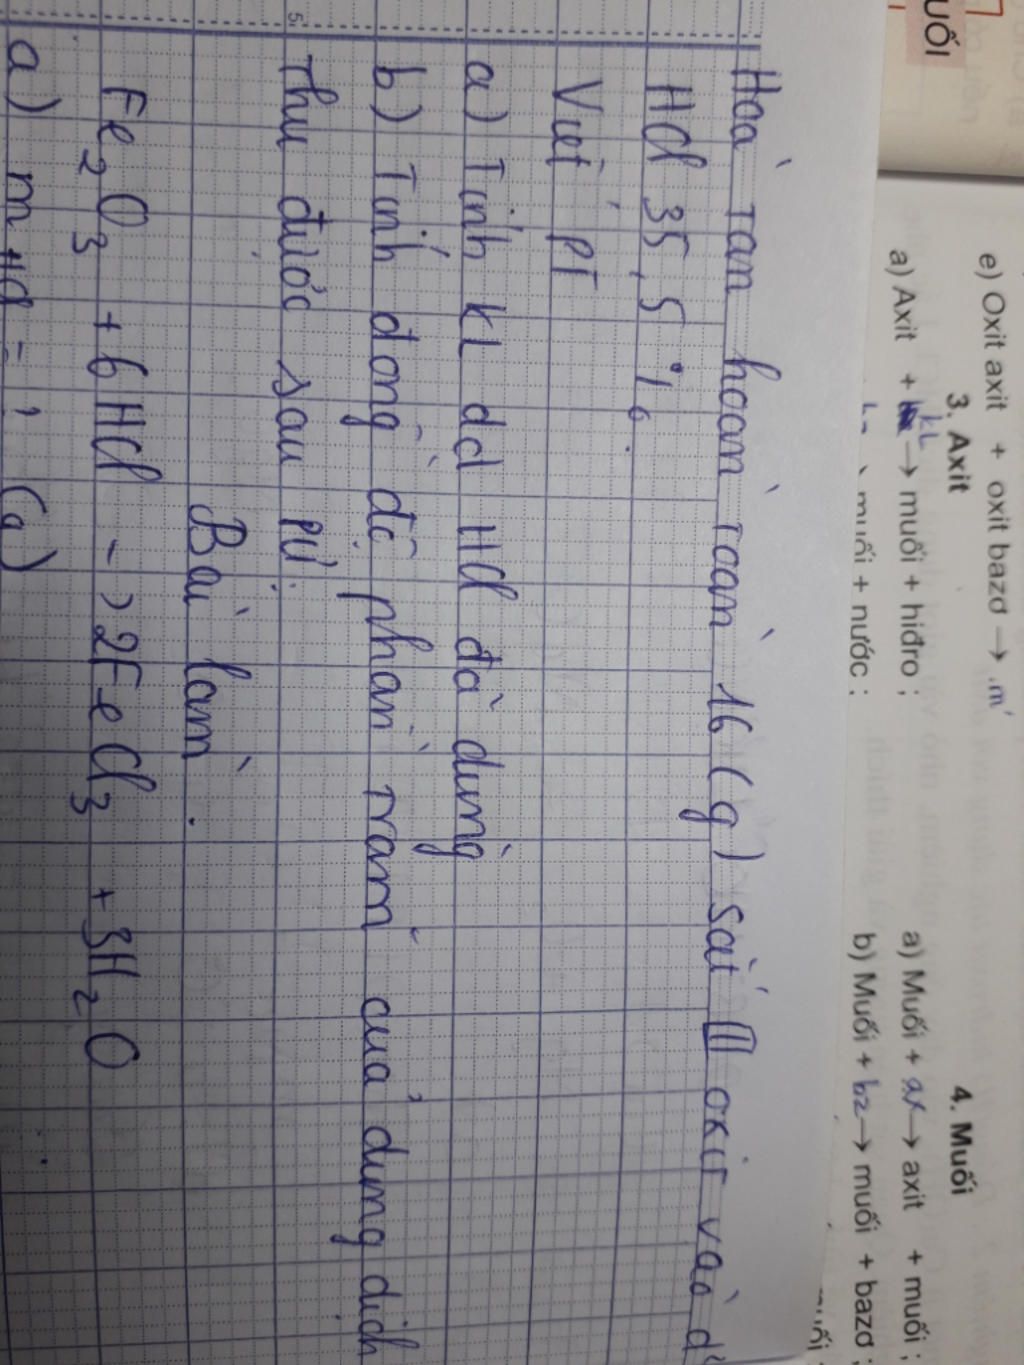 uối
e) Oxit axit + oxit bazơ → .m'
3. Axit
4. Muối
a) Axit + kL → muối + hiđro ;
muối + nước ;
a) Muối + ax → axit + muối ;
b) Muối + bz → muối + bazơ ;
Hoà tan hoàn toàn 16 (g) sắt III oxit vào d
HCl 35,5 %.
Viết PT
a) Tính kL dd HCl đã dùng
b) Tính đồng độ phần trăm của dung dịch
thu được sau PƯ.
Bài làm.
Fe2O3 + 6HCl -> 2FeCl3 + 3H2O
a) mHCl = ; (a)